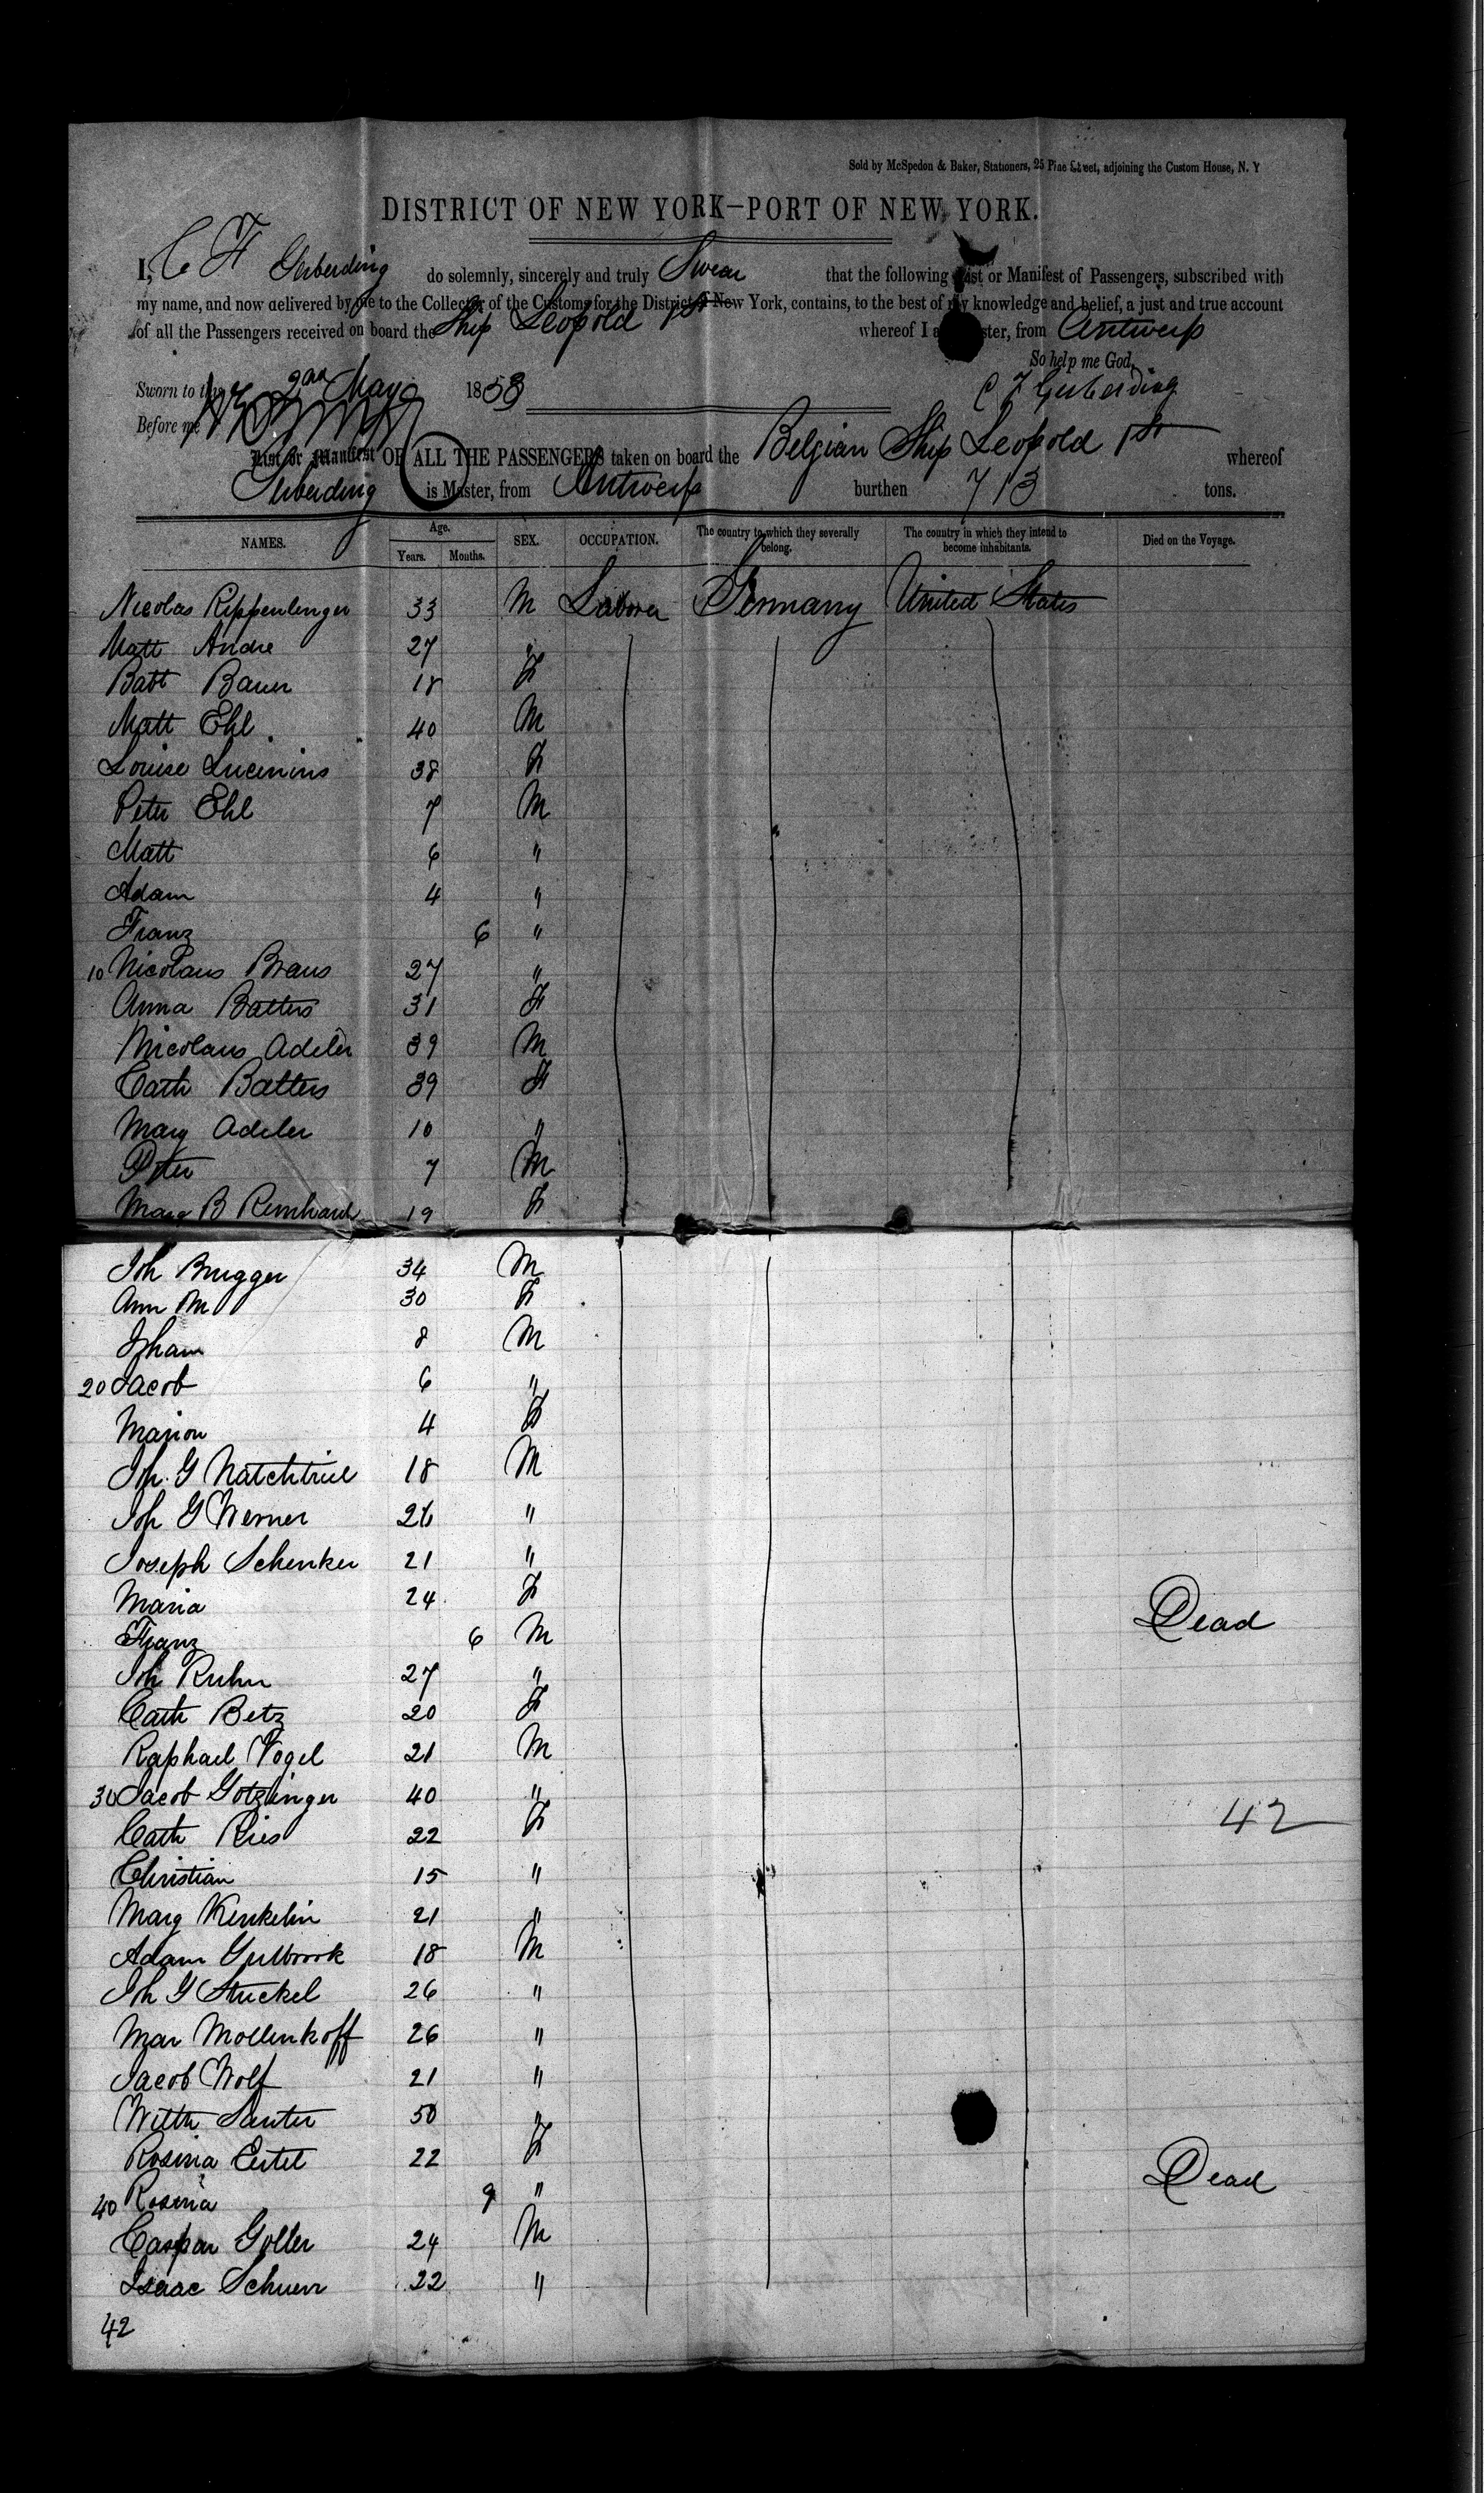 Sold by McSpedon & Baker, Stationers, 25 Pine Street, adjoining the Custom House, N. Y
DISTRICT OF NEW YORK—PORT OF NEW YORK.
I, C F Gerberding do solemnly, sincerely and truly Swear that the following List or Manifest of Passengers, subscribed with
my name, and now delivered by me to the Collector of the Customs for the District of New York, contains, to the best of my knowledge and belief, a just and true account
of all the Passengers received on board the Ship Leopold 1st whereof I am Master, from Antwerp
So help me God,
Sworn to this 2nd May 1853 C F Gerberding
Before me
List or Manifest OF ALL THE PASSENGERS taken on board the Belgian Ship Leopold 1st whereof
Gerberding is Master, from Antwerp burthen 713 tons.
NAMES. Age. Years. Months. SEX. OCCUPATION. The country to which they severally belong. The country in which they intend to become inhabitants. Died on the Voyage.
Nicolas Rippenlinger 33 M Laborer Germany United States
Matt Andre 27 "
Babt Bauer 18 F
Matt Ehl 40 M
Louise Lucinins 38 F
Peter Ehl 7 M
Matt 6 "
Adam 4 "
Franz 6 "
10 Nicolaus Braus 27 "
Anna Batters 31 F
Nicolaus Adeler 39 M
Cath Batters 39 F
Marg Adeler 10 "
Peter 7 M
Marg B Reinhard 19 F
Joh Brugger 34 M
Ann M 30 F
Joham 8 M
20 Jacob 6 "
Marion 4 F
Joh. G Natchtriel 18 M
Joh G Werner 26 "
Joseph Schenker 21 "
Maria 24 F
Franz 6 M Dead
Joh Ruhn 27 "
Cath Betz 20 F
Raphael Vogel 21 M
30 Jacob Gotzinger 40 "
Cath Ries 22 F 42
Christian 15 "
Marg Kenkelin 21 "
Adam Gullbrook 18 M
Joh G Stuckel 26 "
Mar Mollenkoff 26 "
Jacob Wolf 21 "
Wilth Santer 50 "
Rosina Eistel 22 F
40 Rosina 9 " Dead
Caspar Goller 24 M
Isaac Schuerr 22 "
42